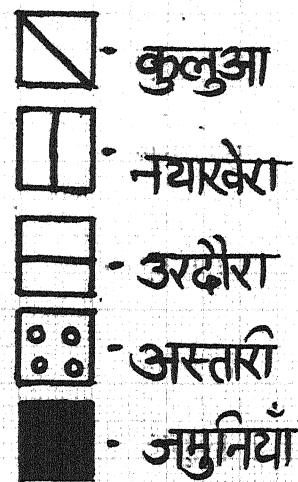 - कुलुआ
- नयाखेरा
- उरदौरा
- अस्तारी
- जमुनियाँ